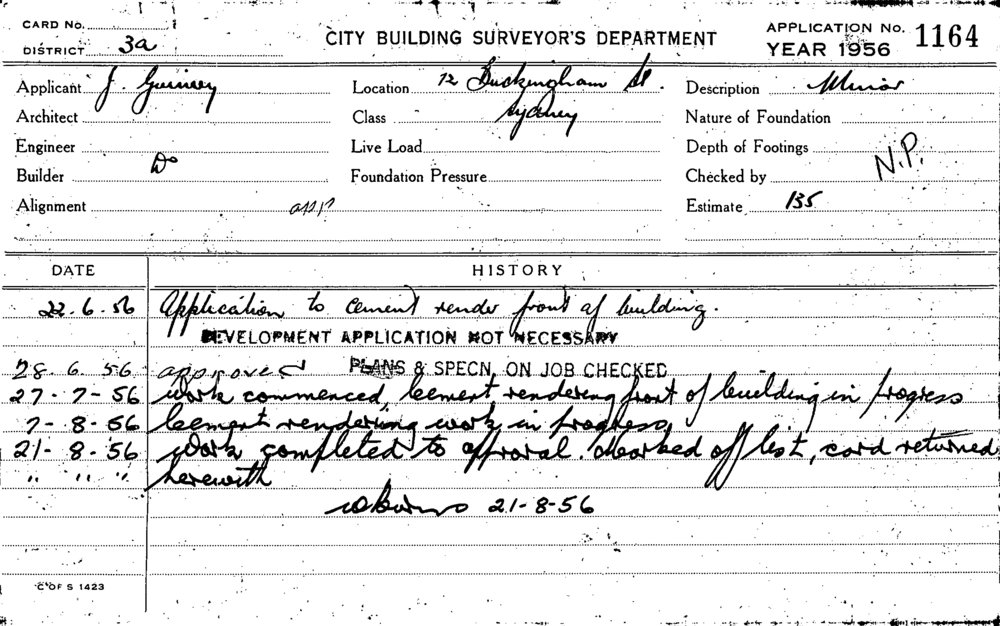 CARD No.
DISTRICT 3a
CITY BUILDING SURVEYOR'S DEPARTMENT
APPLICATION No. 1164
YEAR 1956
Applicant J.
Location 72 Buckingham St.
Description Minor
Architect
Class Sydney
Nature of Foundation
Engineer
Live Load
Depth of Footings
Builder Do
Foundation Pressure
Checked by N.P.
Alignment app
Estimate 135
DATE
HISTORY
22.6.56 Application to cement render front of building.
DEVELOPMENT APPLICATION NOT NECESSARY
28.6.56 approved PLANS & SPECN. ON JOB CHECKED
27-7-56 Work commenced, cement rendering front of building in progress
7-8-56 Cement rendering work in progress
21-8-56 Work completed to approval. Marked off list, card returned
" " " herewith
21-8-56
C OF S 1423